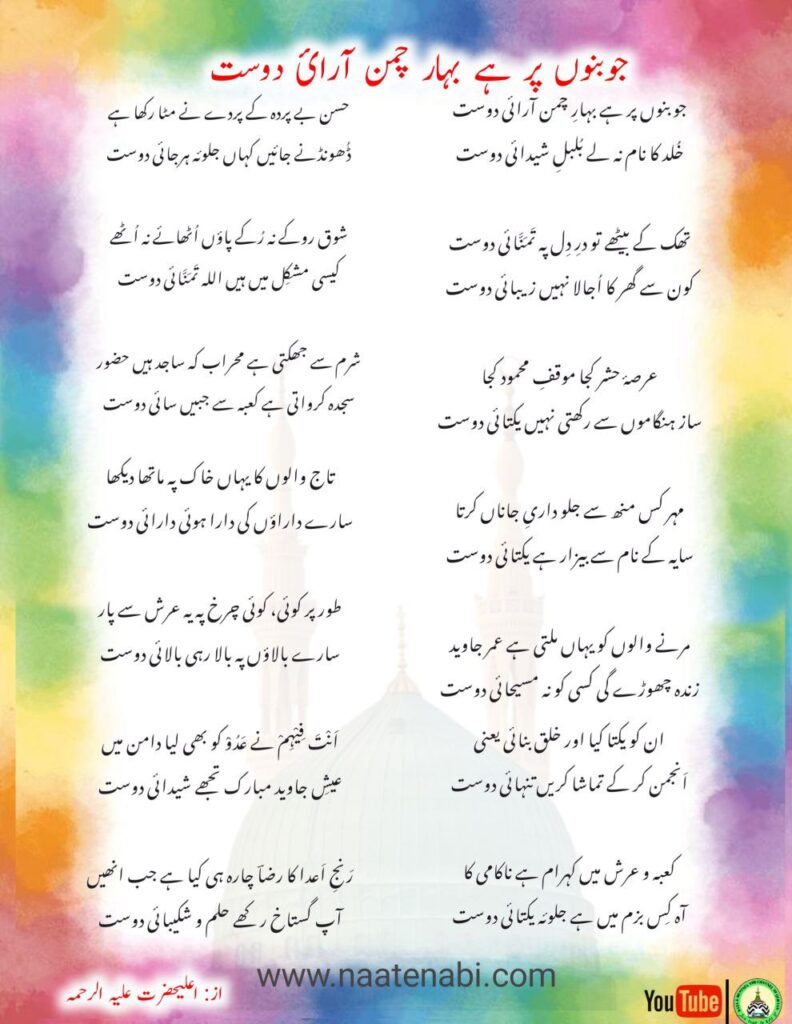 جوبنوں پر ہے بہار چمن آرائ دوست
جوبنوں پر ہے بہارِ چمن آرائی دوست
خُلد کا نام نہ لے بُلبلِ شیدائی دوست
تھک کے بیٹھے تو درِ دِل پہ تَمَنَّائی دوست
کون سے گھر کا اُجالا نہیں زیبائی دوست
عرصۂ حشر کجا موقفِ محمود کجا
ساز ہنگاموں سے رکھتی نہیں یکتائی دوست
مہر کس منھ سے جلو داریِ جاناں کرتا
سایہ کے نام سے بیزار ہے یکتائی دوست
مرنے والوں کو یہاں ملتی ہے عمر جاوید
زندہ چھوڑے گی کسی کو نہ مسیحائی دوست
ان کو یکتا کیا اور خلق بنائی یعنی
اَنجمن کر کے تماشا کریں تنہائی دوست
کعبہ و عرش میں کہرام ہے ناکامی کا
آہ کِس بزم میں ہے جلوئہ یکتائی دوست
حسن بے پردہ کے پردے نے مٹا رکھا ہے
ڈُھونڈنے جائیں کہاں جلوئہ ہرجائی دوست
شوق روکے نہ رُکے پاؤں اُٹھائے نہ اُٹھے
کیسی مشکِل میں ہیں اللہ تَمَنَّائی دوست
شرم سے جھکتی ہے محراب کہ ساجد ہیں حضور
سجدہ کرواتی ہے کعبہ سے جبیں سائی دوست
تاج والوں کا یہاں خاک پہ ماتھا دیکھا
سارے داراؤں کی دارا ہوئی دارائی دوست
طور پر کوئی، کوئی چرخ پہ یہ عرش سے پار
سارے بالاؤں پہ بالا رہی بالائی دوست
اَنْتَ فِیْہِمْ نے عَدُوْ کو بھی لیا دامن میں
عیشِ جاوید مبارک تجھے شیدائی دوست
رَنجِ اَعدا کا رضاؔ چارہ ہی کیا ہے جب انھیں
آپ گستاخ رکھے حلم و شکیبائی دوست
www.naatenabi.com
از: اعلیحضرت علیہ الرحمہ
YouTube